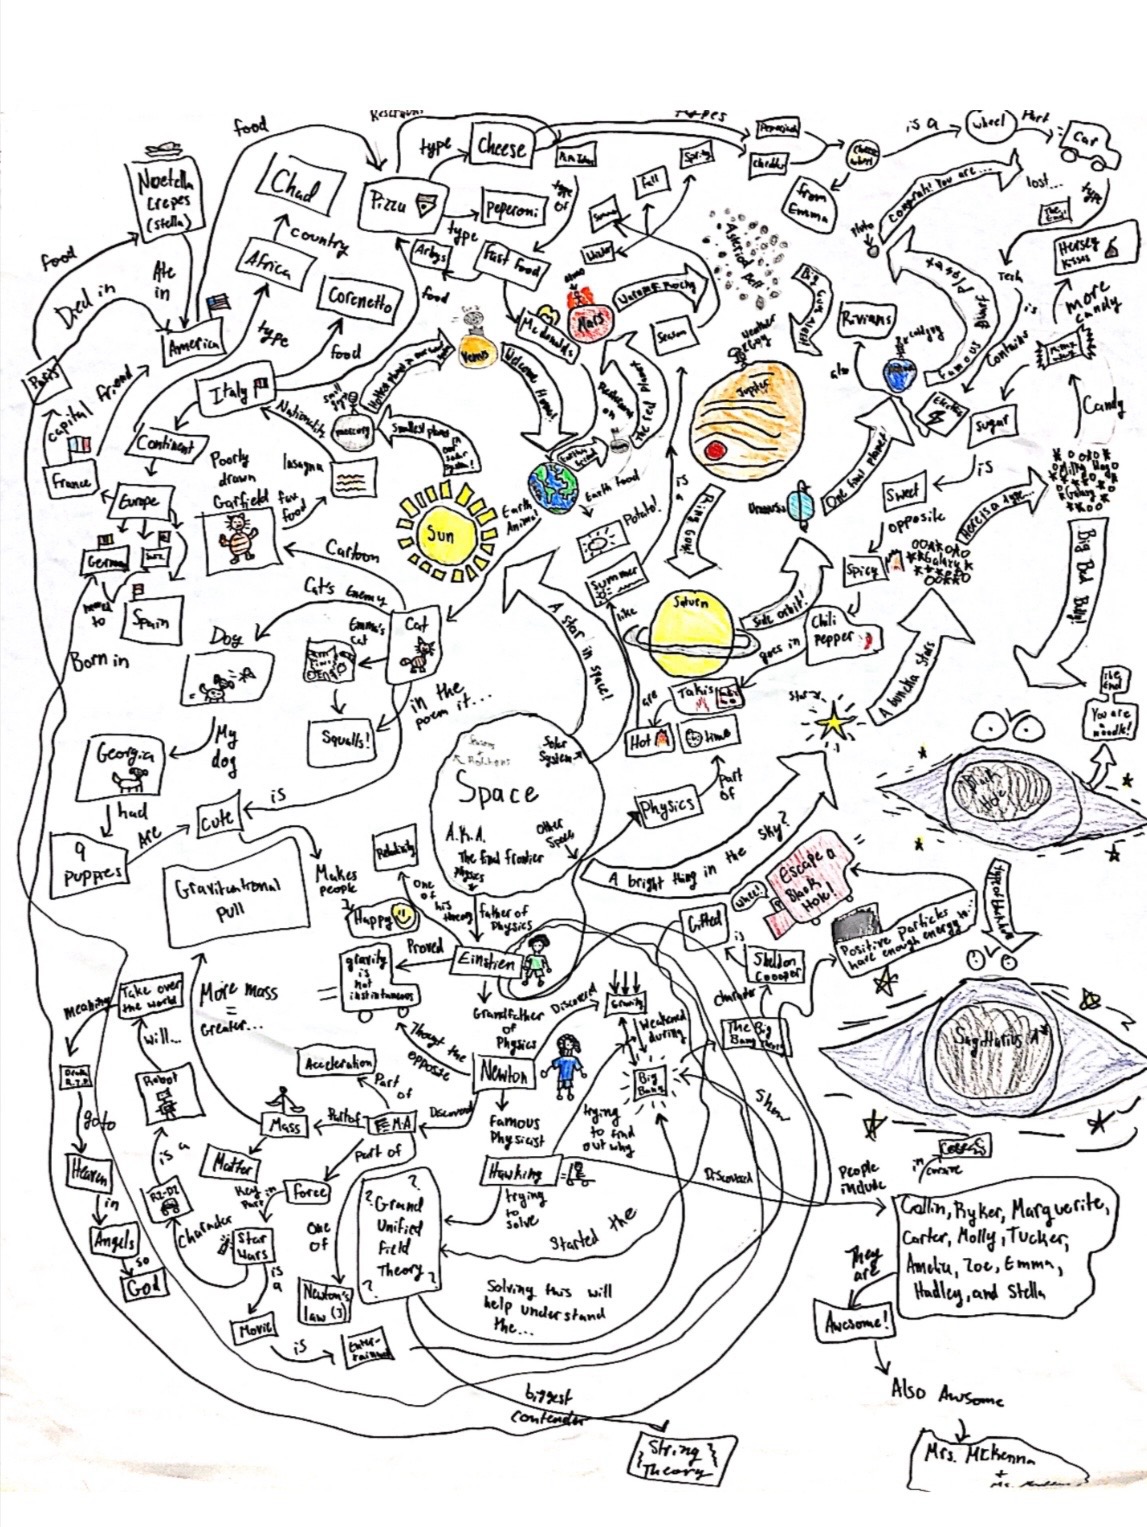 food
type
Cheese
types
is a
wheel
Part
Car
Noetella
Crepes
(stella)
Chad
Pizza
Peperoni
Fall
Spring
from
Emma
congrats! You are ...
lost...
type
The End!
Hersey
Kisses
food
Ate
in
country
Africa
type
Arbys
Fast Food
type
of
Winter
Asteroid Belt
Pluto
Tech
is
more
candy
Died in
America
type
Corenetto
food
food
Venus
McDonalds
Mars
Season
Weather
Guy
Rivians
also
famous
First
contains
Paris
capital
friend
Italy
Nationality
mercury
Smallest planet
in
our
solar
system!
Welcome Home!
the red
Planet
Jupiter
Electric
Sugar
Candy
is
Continent
France
Europe
Poorly
drawn
Garfield
Lasagna
fav
food
Sun
Earth
Animal
Earth food
is
a
Ring
Uranus
One final planet!
Sweet
opposite
Here is a dupe...
Milky Way
Galaxy
German
Spain
Cartoon
Potato!
Summer
like
Saturn
Side orbit!
Spicy
Galaxy
Big Bad Bully!
Cat's Enemy
Dog
Emma's
cat
Cat
A star in space!
goes in
Chili
Pepper
Born in
in the
poem it...
Squalls!
are
Takis
Hot
time
star
A buncha stars
The
End
You are
a noodle!
Georgia
My
dog
had
9
puppres
Are
cute
is
Seasons
Rotations
Solar
System
Space
A.K.A.
The final frontier
Physics
Other
Physics
part
of
A bright thing in the sky?
Black
Hole
Makes
people
Happy
Gravitational
Pull
Relativity
one
of
his
theory
father of
Physics
Einstien
Proved
gravity
is
not
instintaneous
Wheel!
Escape a
Black
Hole!
Gifted
is
Sheldon
Coooper
character
The Big
Bang Theory
Positive Particles
have enough energy to..
meaning
Take over
the world
will...
Robot
More mass
=
Greater...
Grandfather
of
Physics
Discovered
Gravity
Weakened
during
Big
Bang
Thought the
opposite
Newton
Acceleration
Part
of
Discovered
F=MA
Part of
Mass
part of
Matter
Force
Famous
Physicist
trying
to
find
out why
Hawking
Discovered
Show
Sagittarius A*
goto
Heaven
in
Angels
so
God
is a
R2-D2
character
Star
Wars
is
a
Movie
is
Enter-
tainment
one
of
Newton's
law (3)
?
Grand
Unified
Field
Theory
?
trying
to
solve
Started the
Solving this will
help understand
the...
biggest
contender
String
Theory
in
cursive
People
include
Collin, Ryker, Marguerite,
Carter, Molly, Tucker,
Amelia, Zoe, Emma,
Hadley, and Stella
They
are
Awesome!
Also Awsome
Mrs. McKenna
+